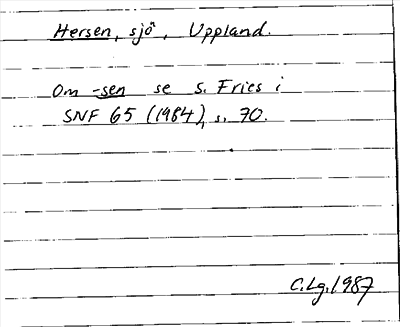 Hersen, sjö, Uppland.
Om -sen se S. Fries i
SNF 65 (1984), s. 70.
C.Lg.1987